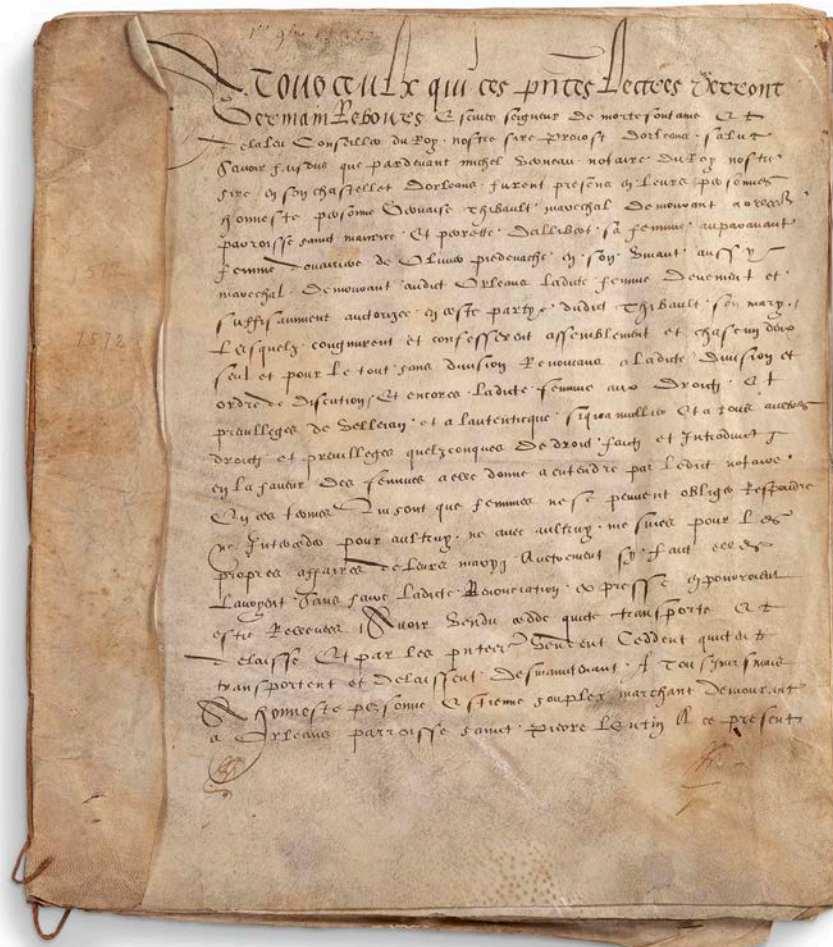 A tous ceulx qui ces pntes lectres verront
Germain Rebours Escuier seigneur de mortefontaine Et
delaleu Conseiller du Roy nostre sire prevost dorleans salut
Savoir faisons que pardevant michel notaire du Roy nostre
sire en son chastellet dorleans furent presens en leurs personnes
honneste personne Gervaise Thibault marechal demourant a
parroisse sainct maurice Et perrette sa femme auparavant
femme douairiere de Olivier piedevache en son vivant aussy
marechal demourant audict Orleans ladicte femme deuement et
suffisamment auctorizee en ceste partye dudict Thibault son mary
Lesquelz congnurent et confesserent assemblement et chascun deux
seul et pour le tout sans division Renoncans a ladicte division et
ordre de discution Et encores ladicte femme aux droictz Et
previlleges de velleian et a lautenticque siqua mullier Et a tous aultres
droictz et previlleges quelzconques de droict faictz et Introduictz
en la faveur des femmes a elle donne a entendre par ledict notaire
En ces termes Qui sont que femmes ne se peuvent obliger Respondre
ne Interceder pour aultruy ne avec aultruy mesmes pour les
propres affaires de leurs marys Aultrement sy faict
lavoyent sans faire ladicte Renonciation expresse en pourroient
estre Relevees Avoir vendu cedde quicte transporte Et
delaisse Et par les pntes vendent Ceddent quictent
transportent et delaissent desmaintenant A Tousjoursmais
A honneste personne Estienne souplex marchant demourant
a Orleans parroisse sainct pierre Lentin A ce present
1572